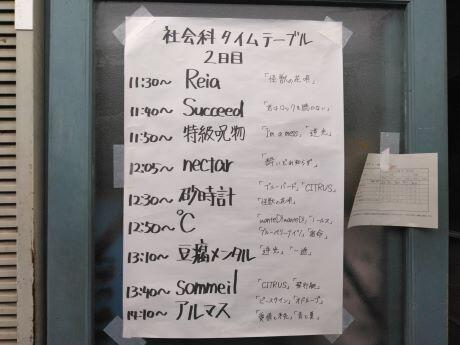 社会科 タイムテーブル
2日目
11:30〜 Reia 「怪獣の花唄」
11:40〜 Succeed 「君はロックを聴かない」
11:50〜 特級呪物 「I'm a mess」「逆光」
12:05〜 nectar 「酔いどれ知らず」
12:30〜 砂時計 「ブルーバード」「CITRUS」
「怪獣の花唄」
12:50〜 ℃ 「wanted!wanted!」「ノールス」
「ブルーベリーナイツ」「宿命」
13:10〜 豆腐メンタル 「逆光」「一途」
13:40〜 Sommeil 「CITRUS」
14:10〜 アルマス 「ピースサイン」